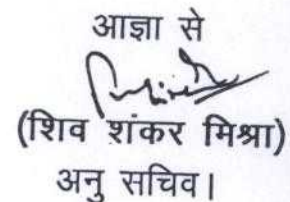 आज्ञा से
(शिव शंकर मिश्रा)
अनु सचिव।